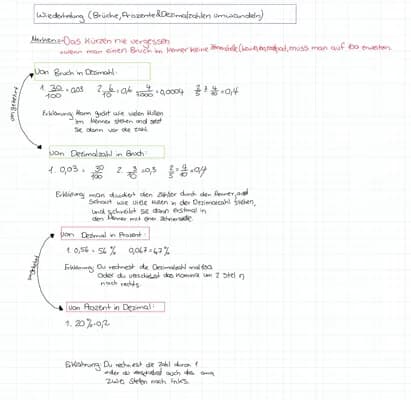 Wiederholung (Brüche, Prozente & Dezimalzahlen umwandeln)
Merken:- Das Kürzen nie vergessen
-wenn man einen Bruch im Nenner keine hat, muss man auf 100 erweitern.
Von Bruch in Dezimahl:
1. 30/100 = 0,03 2. 6/10 = 0,6 4/1000 = 0,0004 2/5 = 4/10 = 0,4
umgekehrt
Erklärung: Mann guckt wie vielen Nullen
im Nenner stehen und setzt
sie dann vor die Zahl.
von Dezimalzahl in Bruch:
1. 0,03 = 30/100 2. 3/10 = 0,3 2/5 = 4/10 = 0,4
Erklärung: man dividiert den Zähler durch den Nenner, und
Schaut wie viele Nullen in der Dezimalzahl stehen,
und schreibt sie dann erstmal in
den Nenner mit einer
von Dezimal in Prozent:
1. 0,56 = 56 % 0,067 = 67 %
umgekehrt
Erklärung: Du rechnest die Dezimalzahl mal 100
oder du verschiebst das Komma um 2 Stel
nach rechts.
von Prozent in Dezimal:
1. 20 % = 0,2
Erklährung: Du rechnest die Zahl durch 1
oder du verschiebst auch das
zwei Stellen nach links.